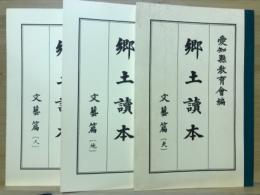 愛知縣教育會編
郷土讀本
文藝篇
〔天〕
郷土讀本
文藝篇
〔地〕
郷土讀本
文藝篇
〔人〕